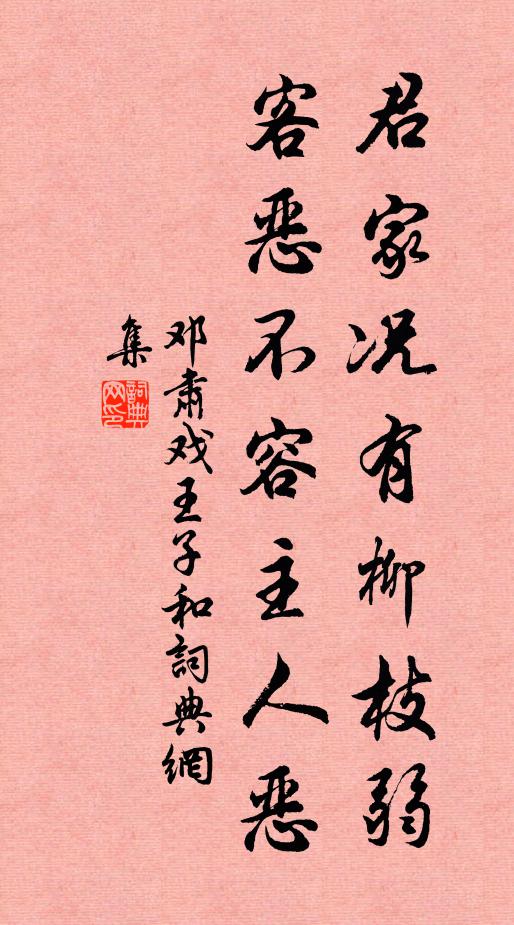 君家况有柳枝弱
客恶不容主人恶
邓肃戏王子和詞典網
集
詞典网印